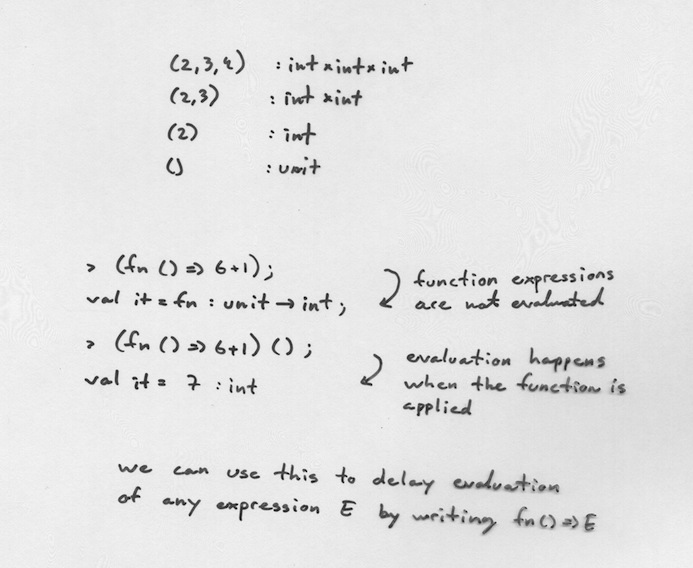 (2,3,4) : int × int × int
(2,3) : int × int
(2) : int
() : unit
> (fn () => 6+1);
val it = fn : unit → int;
function expressions
are not evaluated
> (fn () => 6+1) ();
val it = 7 : int
evaluation happens
when the function is
applied
we can use this to delay evaluation
of any expression E by writing fn () => E